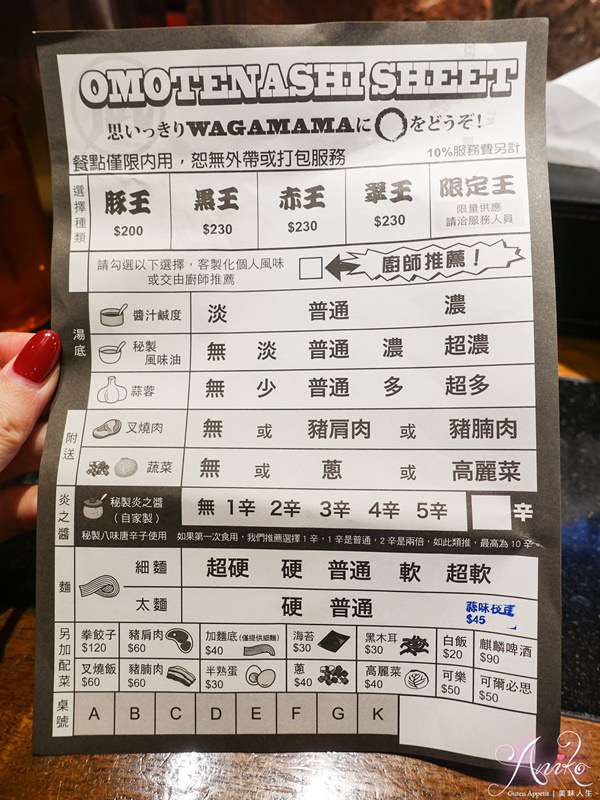 OMOTENASHI SHEET
思いっきりWAGAMAMAに〇をどうぞ!
餐點僅限內用，恕無外帶或打包服務
10%服務費另計
選擇種類
豚王 黒王 赤王 翠王 限定王
$200 $230 $230 $230 限量供應
請洽服務人員
請勾選以下選擇，客製化個人風味
或交由廚師推薦
廚師推薦！
湯底
醬汁鹹度 淡 普通 濃
秘製
風味油 無 淡 普通 濃 超濃
蒜蓉 無 少 普通 多 超多
附送
叉燒肉 無 或 豬肩肉 或 豬腩肉
蔬菜 無 或 蔥 或 高麗菜
炎之醬
秘製炎之醬
(自家製) 無 1辛 2辛 3辛 4辛 5辛 辛
秘製八味唐辛子使用 如果第一次食用，我們推薦選擇1辛，1辛是普通，2辛是兩倍，如此類推，最高為10辛。
麵
細麵 超硬 硬 普通 軟 超軟
太麵 硬 普通
$45
另加配菜
拳餃子 $120 豬肩肉 $60 加麵底(僅提供細麵) $40 海苔 $30 黑木耳 $30 白飯 $20 麒麟啤酒 $90
叉燒飯 $60 豬腩肉 $60 半熟蛋 $30 蔥 $40 高麗菜 $40 可樂 $50 可爾必思 $50
桌號 A B C D E F G K
Aniko
Guten Appetit | 美味人生